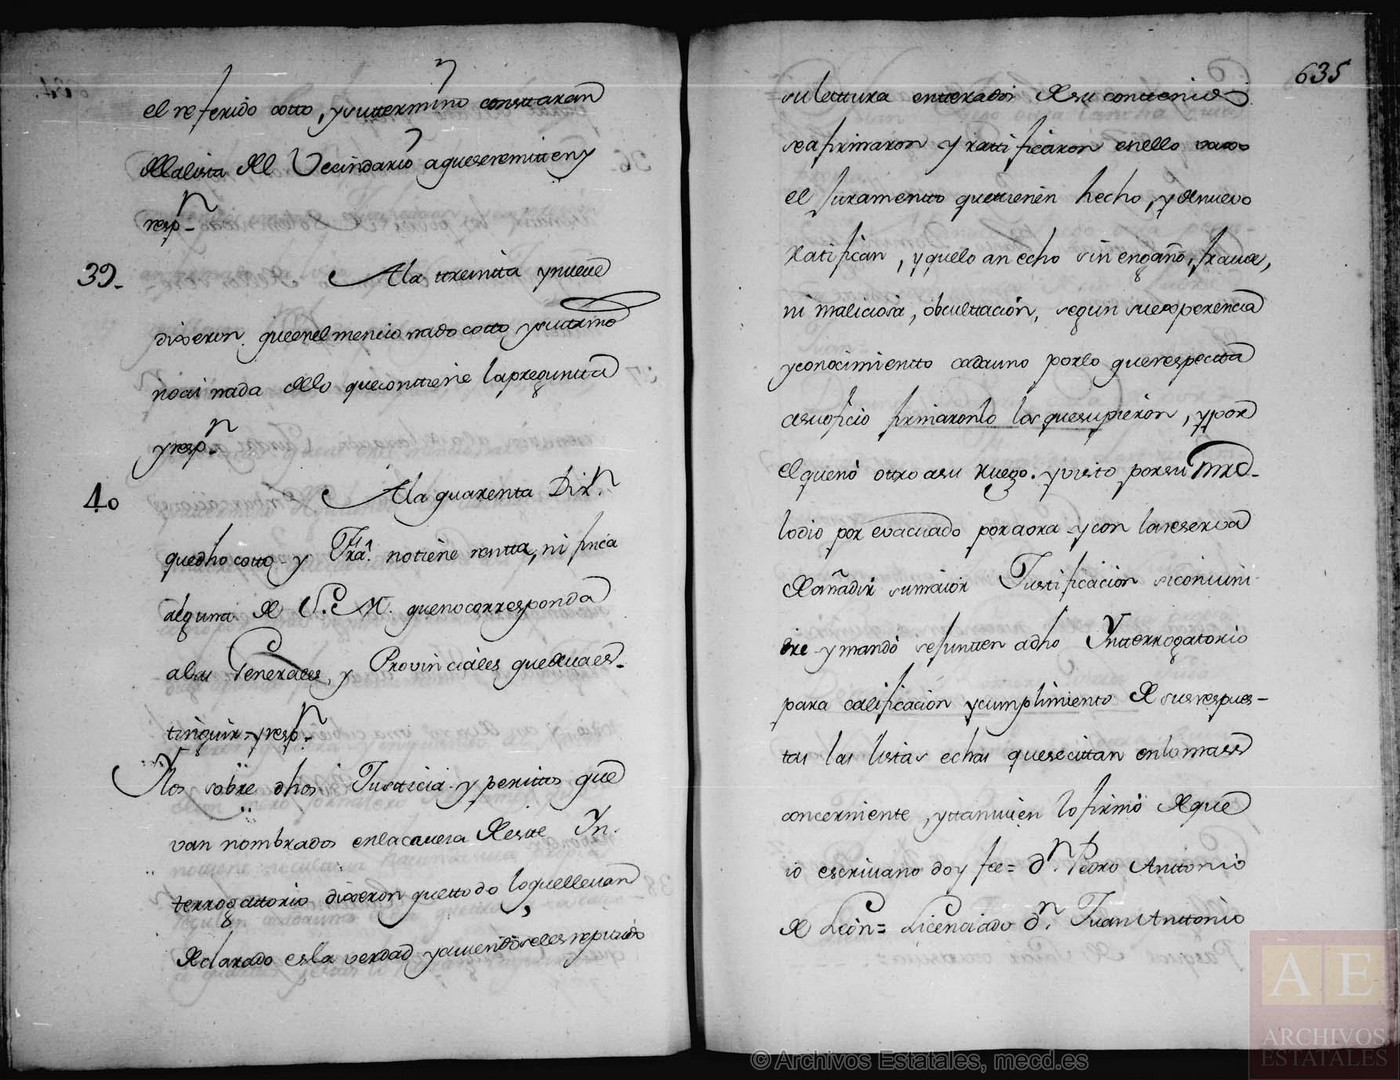 el referido cotto, y su ttermino consttaran
de la lista del Vecindario a que se remitten y
resp.n
39. A la ttreintta y nueve
dixeron que en el mencionado cotto y su trmino
no ai nada de lo que conttiene la preguntta
y resp.n
40 A la quarenta Dix.n
que dho cotto y Fra. no tiene rentta, ni finca
alguna de S. M. que no corresponda
a las Generales, y Provinciales que deva es-
tinguir y resp.n
Nos sobre dhos Justicia y peritos que
van nombrados en la cavera de este Yn-
terrogattorio dixeron que ttodo lo que llevan
declarado es la verdad y aviendoseles repettido
635
su lettura entterados de su conttenido
se afirmaron y rattificaron en ello vaxo
el juramentto que ttienen hecho, y de nuevo
ratifican, y que lo an echo sin engaño, fraude,
ni maliciosa, obcultacion, segun su experencia
y conocimientto cada uno por lo que respectta
a su oficio firmaronlo los que supieron, y por
el que nó ottro a su ruego. y visto por su mrd.
lo dio por evacuado por aora y con la reserva
de añadir su maior Justificacion si conuini
ere y mandó se juntten a dho Ynterrogatorio
para calificacion y cumplimiento de sus respues-
tas las listas echas que se cittan en lo mas
concerniente, y ttanvien lo firmó de que
io escrivano doy fee= d.n Pedro Anttonio
de León= Licenciado d.n Juan Anttonio
© Archivos Estatales, mecd.es
A E
ARCHIVOS
ESTATALES